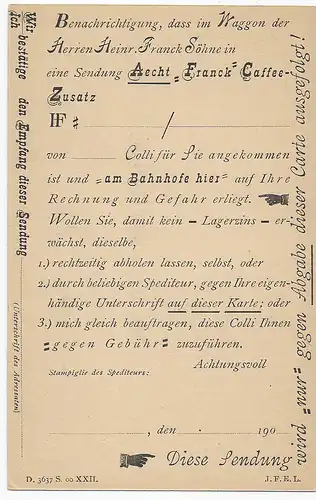 Benachrichtigung, dass im Waggon der
Herren Heinr. Franck Söhne in
eine Sendung Aecht „Franck" Caffee-
Zusatz
HF #  /
von  Colli für Sie angekommen
ist und „am Bahnhofe hier" auf Ihre
Rechnung und Gefahr erliegt.
Wollen Sie, damit kein – Lagerzins – er-
wächst, dieselbe,
1.) rechtzeitig abholen lassen, selbst, oder
2.) durch beliebigen Spediteur, gegen Ihre eigen-
händige Unterschrift auf dieser Karte; oder
3.) mich gleich beauftragen, diese Colli Ihnen
„gegen Gebühr" zuzuführen.
Achtungsvoll
Stampiglie des Spediteurs:
, den  .  190
Diese Sendung
wird „nur" gegen Abgabe dieser Carte ausgefolgt!
D. 3637 S. 00 XXII.
J. F. E. L.
Wir
Ich bestätige den Empfang dieser Sendung
(Unterschrift des Adressaten)